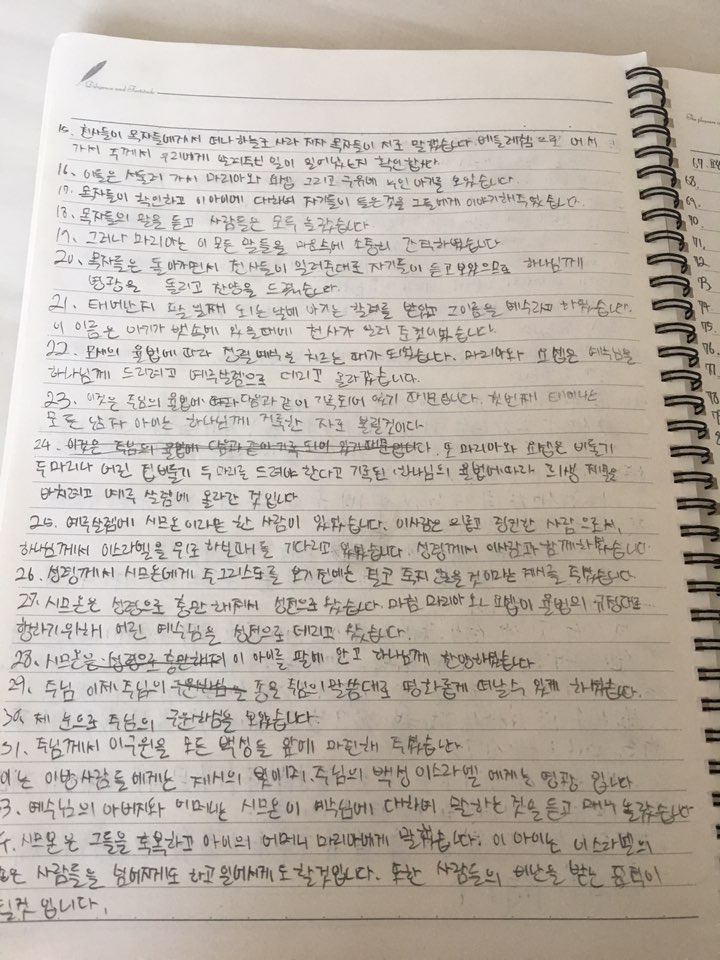 Diligence and Fortitude
15. 천사들이 목자들에게서 떠나 하늘로 사라 지자 목자들이 서로 말했습니다. 베들레헴으로 어서
가서 주께서 우리에게 알려주신 일이 일어났는지 확인합시다.
16. 이들은 서둘러 가서 마리아와 요셉 그리고 구유에 누인 아기를 보았습니다
17. 목자들이 확인하고 이 아이에 대하여 자기들이 들은것을 그들에게 이야기해주었습니다.
18. 목자들의 말을 듣고 사람들은 모두 놀랐습니다
19. 그러나 마리아는 이 모든 말들을 마음속에 소중히 간직하였습니다
20. 목자들은 돌아가면서 천사들이 일러준대로 자기들이 듣고 보았으므로 하나님께
영광을 돌리고 찬양을 드렸습니다.
21. 태어난지 팔일째 되는 날에 아기는 할례를 받았고 그이름을 예수라고 하였습니다.
이 이름은 아기가 뱃속에 있을때에 천사가 일러 준것이었습니다.
22. 모세의 율법에 따라 정결 예식을 치르는 때가 되었습니다. 마리아와 요셉은 예수님을
하나님께 드리려고 예루살렘으로 데리고 올라갔습니다.
23. 이것은 주님의 율법에 다음과 같이 기록되어 있기 때문입니다. 첫번째 태어나는
모든 남자 아이는 하나님께 거룩한 자로 불릴것이다
24. 이것은 주님의 율법에 다음과 같이 기록 되어 있기 때문입니다. 또 마리아와 요셉은 비둘기
두마리나 어린 집비둘기 두 마리를 드려야 한다고 기록된 하나님의 율법에따라 희생 제물을
바치려고 예루살렘에 올라간 것입니다
25. 예루살렘에 시므온 이라는 한 사람이 있었습니다. 이사람은 의롭고 경건한 사람으로서,
하나님께서 이스라엘을 위로하실때를 기다리고 있었습니다. 성령께서 이사람과 함께하셨습니다
26. 성령께서 시므온에게 주 그리스도를 보기 전에는 결코 죽지 않을 것이라는 계시를 주셨습니다.
27. 시므온은 성령으로 충만 해져서 성전으로 왔습니다. 마침 마리아와 요셉이 율법의 규정대로
행하기위하여 어린 예수님을 성전으로 데리고 왔습니다.
28. 시므온은 성령으로 충만해져 이 아이를 팔에 안고 하나님께 찬양하였습니다
29. 주님 이제 주님의 구원하심을 종은 주님의 말씀대로 평화롭게 떠날수 있게 하셨습니다.
30. 제 눈으로 주님의 구원하심을 보았습니다.
31. 주님께서 이구원을 모든 백성들 앞에 마련해 주셨습니다
이는 이방사람들에게는 계시의 빛이며. 주님의 백성 이스라엘 에게는 영광 입니다
3. 예수님의 아버지와 어머니는 시므온이 예수님에 대하여 말하는 것을 듣고 매우 놀랐습니다
시므온은 그들을 축복하고 아이의 어머니 마리아에게 말했습니다. 이 아이는 이스라엘의
많은 사람들을 넘어지게도 하고 일어서게도 할것입니다. 또한 사람들의 비난을 받는 표적이
될것 입니다.
67.
68.
69.
70.
71.
72
73
74
75.
76.
77.
78